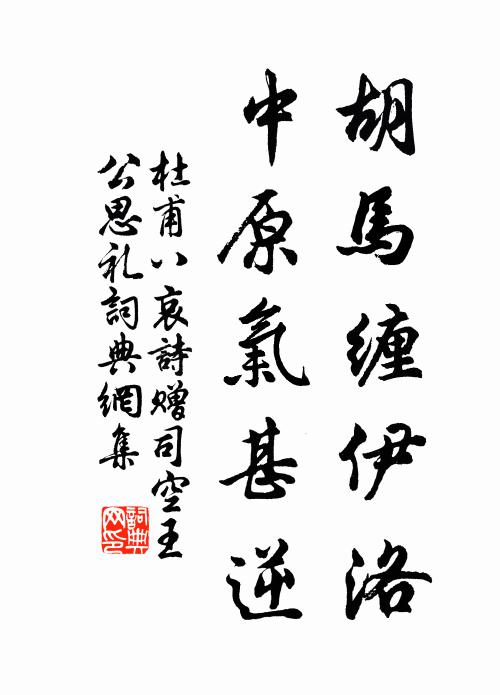 胡馬纏伊洛
中原氣甚逆
杜甫八哀詩贈司空王
公思礼詞典網集
詞典
网印